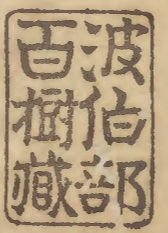 波伯部
百樹藏